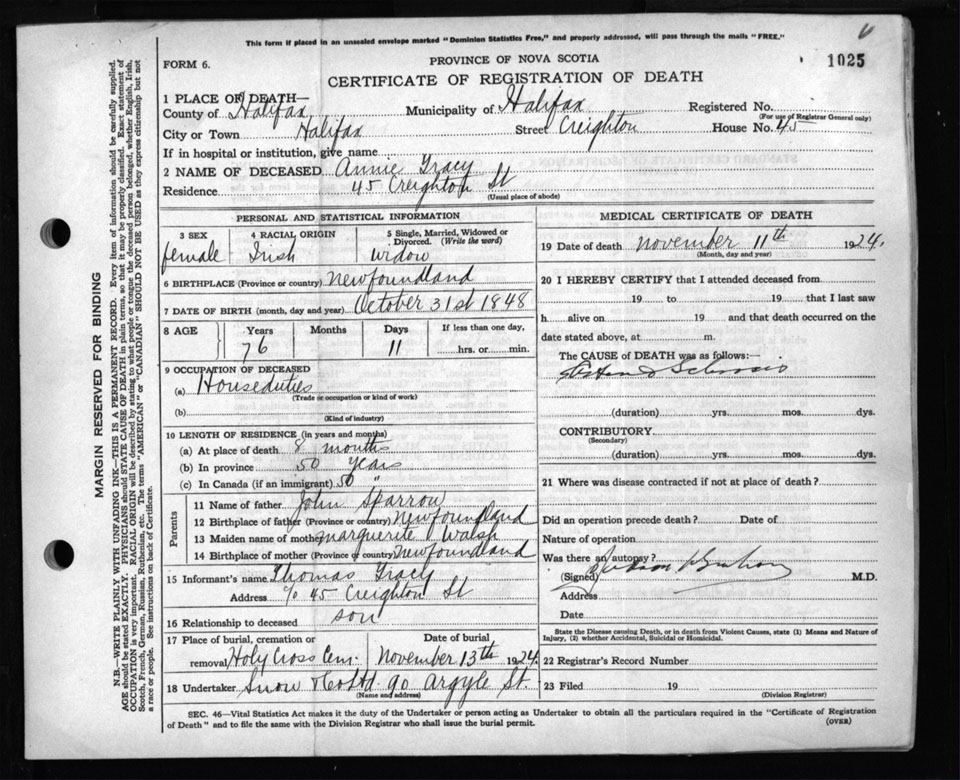 This form if placed in an unsealed envelope marked "Dominion Statistics Free," and properly addressed, will pass through the mails "FREE."
6
FORM 6.
PROVINCE OF NOVA SCOTIA
1025
CERTIFICATE OF REGISTRATION OF DEATH
1 PLACE OF DEATH—
County of Halifax Municipality of Halifax Registered No.
(For use of Registrar General only)
City or Town Halifax Street Creighton House No. 45
If in hospital or institution, give name
2 NAME OF DECEASED Annie Tracy
Residence 45 Creighton St
(Usual place of abode)
PERSONAL AND STATISTICAL INFORMATION
3 SEX 4 RACIAL ORIGIN 5 Single, Married, Widowed or Divorced. (Write the word)
female Irish widow
6 BIRTHPLACE (Province or country) Newfoundland
7 DATE OF BIRTH (month, day and year) October 31st 1848
8 AGE Years Months Days If less than one day,
76 11 hrs. or min.
9 OCCUPATION OF DECEASED
(a) Houseduties
(Trade or occupation or kind of work)
(b)
(Kind of industry)
10 LENGTH OF RESIDENCE (in years and months)
(a) At place of death 8 months
(b) In province 50 Years
(c) In Canada (if an immigrant) 50 "
Parents
11 Name of father John Sparrow
12 Birthplace of father (Province or country) Newfoundland
13 Maiden name of mother Marguerite Walsh
14 Birthplace of mother (Province or country) Newfoundland
15 Informant's name Thomas Tracy
Address c/o 45 Creighton St
16 Relationship to deceased son
17 Place of burial, cremation or Date of burial
removal Holy Cross Cem. November 13th 1924
18 Undertaker Snow & Co Ltd 90 Argyle St.
(Name and address)
MEDICAL CERTIFICATE OF DEATH
19 Date of death November 11th 1924.
(Month, day and year)
20 I HEREBY CERTIFY that I attended deceased from
19 to 19 that I last saw
h alive on 19 and that death occurred on the
date stated above, at m.
The CAUSE OF DEATH was as follows:
Sclerosis
(duration) yrs. mos. dys.
CONTRIBUTORY
(Secondary)
(duration) yrs. mos. dys.
21 Where was disease contracted if not at place of death?
Did an operation precede death? Date of
Nature of operation
Was there an autopsy?
(Signed) M.D.
Address
Date
State the Disease causing Death, or in death from Violent Causes, state (1) Means and Nature of
Injury, (2) whether Accidental, Suicidal or Homicidal.
22 Registrar's Record Number
23 Filed 19
(Division Registrar)
SEC. 46—Vital Statistics Act makes it the duty of the Undertaker or person acting as Undertaker to obtain all the particulars required in the "Certificate of Registration
of Death" and to file the same with the Division Registrar who shall issue the burial permit.
(OVER)
MARGIN RESERVED FOR BINDING
N.B.—WRITE PLAINLY WITH UNFADING INK—THIS IS A PERMANENT RECORD. Every item of information should be carefully supplied.
AGE should be stated EXACTLY. PHYSICIANS should STATE CAUSE OF DEATH in plain terms, so that it may be properly classified. Exact statement of
OCCUPATION is very important. RACIAL ORIGIN will be described by stating to what people or tongue the deceased person belonged, whether English, Irish,
Scotch, French, German, Russian, Ruthenian, etc. The terms "AMERICAN" or "CANADIAN" SHOULD NOT BE USED as they express citizenship but not
a race or people. See instructions on back of Certificate.